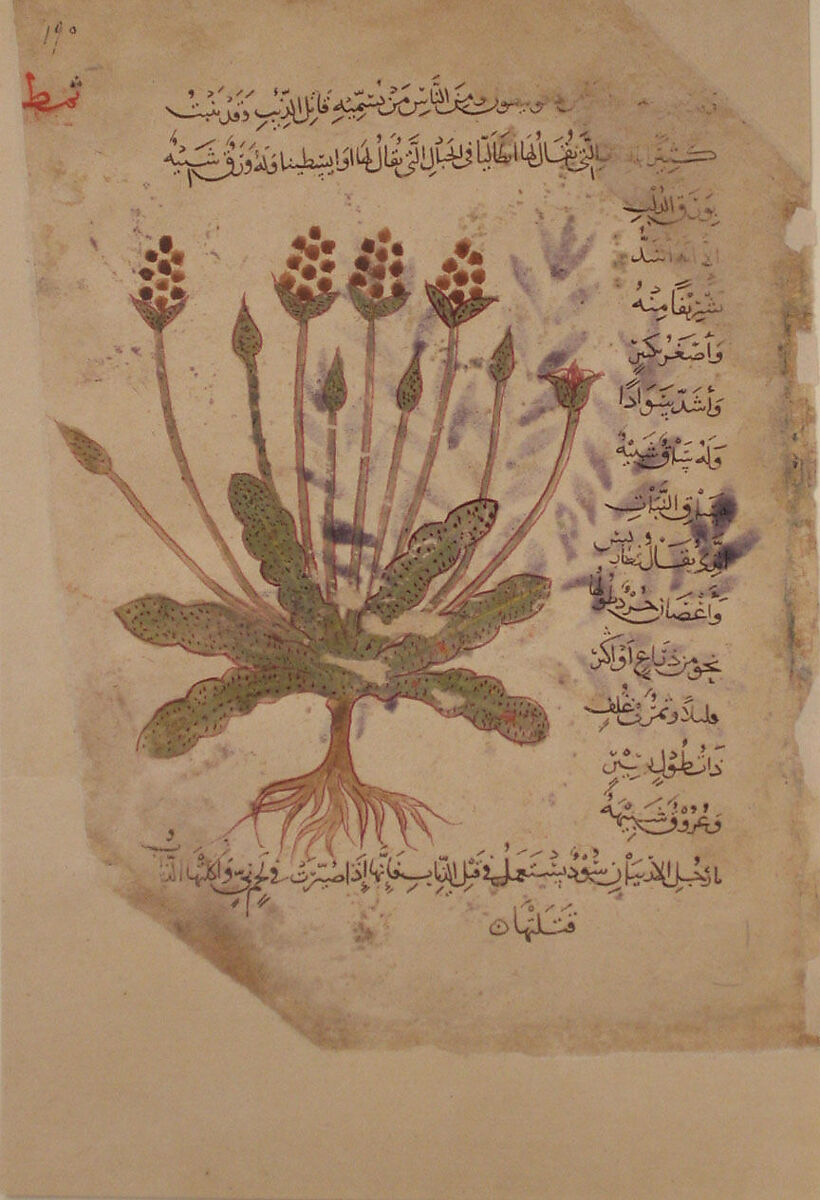 ١٩٥
ثمط
ومن الناس من يسميه قاتل الذئب وقد ينبت
كثيرا التي يقال لها ايطاليا في الجبال التي يقال لها اوايسطينا وله ورق شبيه
بورق الدلب
الا انه اشد
تشريفا منه
وأصغر بكثير
وأشد سوادا
وله ساق شبيه
بساق النبات
الذي يقال
وأغصان جرد طولها
نحو من ذراع او اكثر
قليلا وثمر في غلف
ذات طول يسير
وعروق شبيهة
بارجل الاربيان سود يستعمل في قتل الذئاب فإنها إذا صيرت في لحم نيّ وأكلتها الذئاب
قتلتها